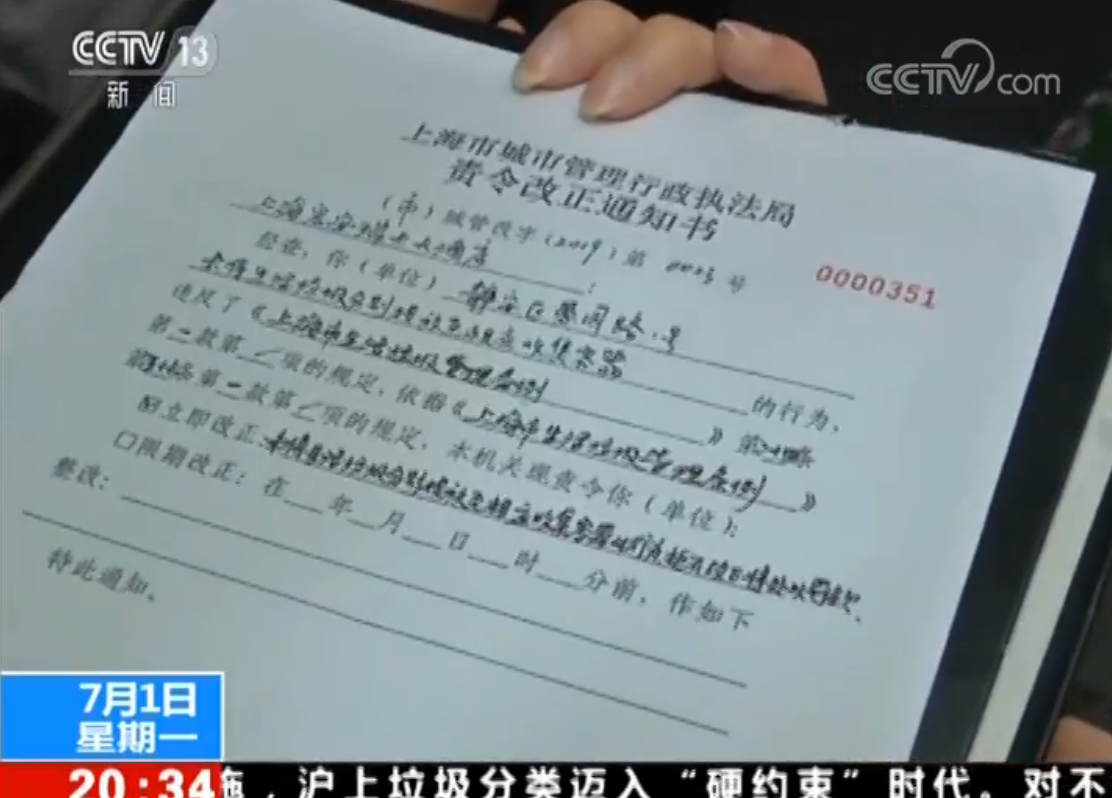 CCTV 13
新闻
CCTV.com
上海市城市管理行政执法局
责令改正通知书
(市)城管改字(2019)第 0003 号
0000351
上海
经查，你(单位) 静安区愚园路1号
未将生活垃圾分别投放至相应收集容器 的行为，
违反了《上海市生活垃圾管理条例》第
第二款第/项的规定，依据《上海市生活垃圾管理条例》
第二款第/项的规定，本机关现责令你(单位)：
立即改正：未将生活垃圾分别投放至相应收集容器的行为
□限期改正：在 年 月 日 时 分前，作如下
整改：
特此通知。
7月1日
星期一
20:34
，沪上垃圾分类迈入“硬约束”时代。对不